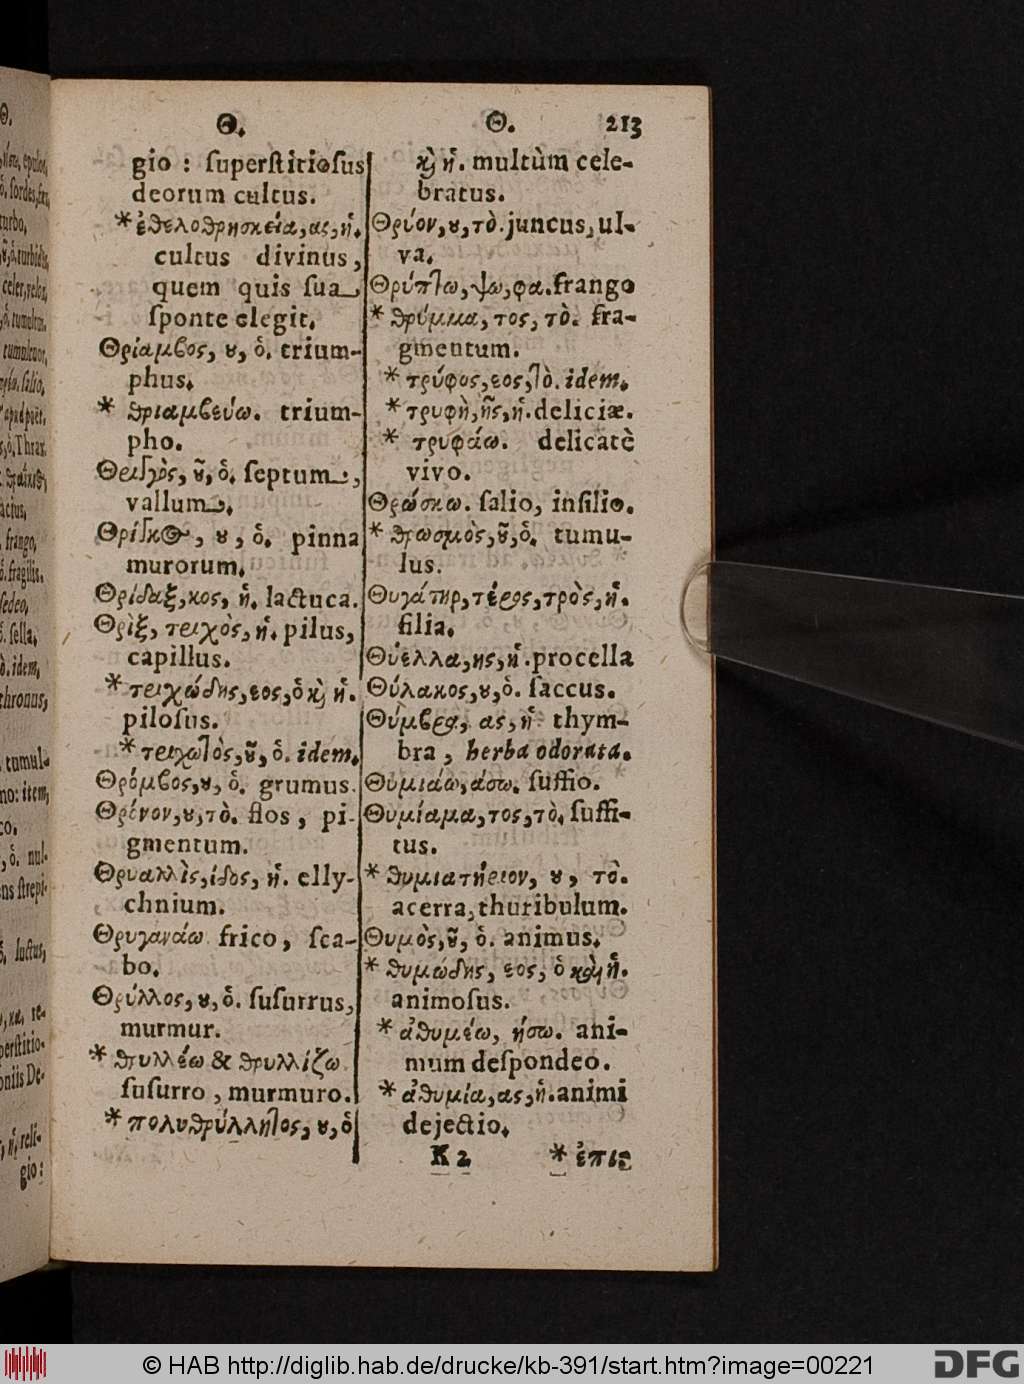 Θ.
gio : ſuperſtitioſus
deorum cultus.
* ἐθελοθρησκεία, ας, ἡ.
cultus divinus,
quem quis ſua
ſponte elegit.
Θρίαμβος, ȣ, ὁ. trium-
phus.
* θριαμβεύω. trium-
pho.
Θριγγὸς, ȣ͂, ὁ. ſeptum,
vallum.
Θρίγκος, ȣ, ὁ. pinna
murorum.
Θρίδαξ, κος, ἡ. lactuca.
Θρὶξ, τριχὸς, ἡ. pilus,
capillus.
* τριχώδης, εος, ὁ κὶ ἡ.
piloſus.
* τριχωτὸς, ȣ͂, ὁ. idem.
Θρόμβος, ȣ, ὁ. grumus.
Θρόνον, ȣ, τὸ. flos, pi-
gmentum.
Θρυαλλὶς, ίδος, ἡ. elly-
chnium.
Θρυγανάω frico, ſca-
bo.
Θρύλλος, ȣ, ὁ. ſuſurrus,
murmur.
* θρυλλέω & θρυλλίζω
ſuſurro, murmuro.
* πολυθρύλλητος, ȣ, ὁ
Θ. 213
κὶ ἡ. multùm cele-
bratus.
Θρύον, ȣ, τὸ. juncus, ul-
va.
Θρύπτω, ψω, φα. frango
* θρύμμα, τος, τὸ. fra-
gmentum.
* τρύφος, εος, τὸ. idem.
* τρυφὴ, ῆς, ἡ. deliciæ.
* τρυφάω. delicatè
vivo.
Θρώσκω. ſalio, inſilio.
* θρωσμὸς, ȣ͂, ὁ. tumu-
lus.
Θυγάτηρ, τέρος, τρὸς, ἡ.
filia.
Θύελλα, ης, ἡ. procella
Θύλακος, ȣ, ὁ. ſaccus.
Θύμβρα, ας, ἡ thym-
bra, herba odorata.
Θυμιάω, άσω. ſuffio.
Θυμίαμα, τος, τὸ. ſuffi-
tus.
* θυμιατήριον, ȣ, τὸ.
acerra, thuribulum.
Θυμὸς, ȣ͂, ὁ. animus.
* θυμώδης, εος, ὁ κὶ ἡ.
animoſus.
* ἀθυμέω, ήσω. ani-
mum deſpondeo.
* ἀθυμία, ας, ἡ. animi
dejectio.
K 2 * ἐπις
© HAB http://diglib.hab.de/drucke/kb-391/start.htm?image=00221
DFG